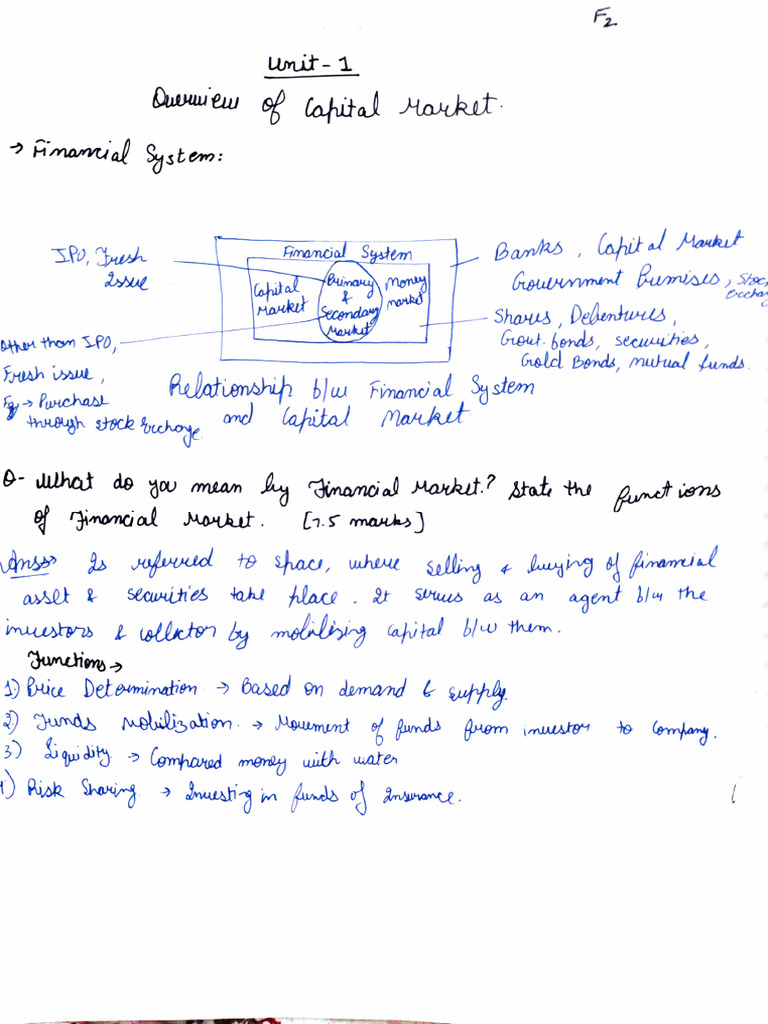 F2
Unit - 1
Overview of Capital Market.
→ Financial System:
IPO, Fresh
Issue
Financial System
Capital
Market
Primary
&
Secondary
Market
Money
market
Banks, Capital Market
Government Premises, Stock
exchang
Shares, Debentures,
Govt. bonds, securities,
Gold Bonds, mutual funds.
Other than IPO,
Fresh issue,
Eg → Purchase
through stock Exchange
Relationship b/w Financial System
and Capital Market
Q- What do you mean by Financial Market? State the functions
of Financial Market. [7.5 marks]
Ans→ Is referred to space, where selling & buying of financial
asset & securities take place. It serves as an agent b/w the
investors & collector by mobilising capital b/w them.
Functions →
1) Price Determination → Based on demand & supply.
2) Funds Mobilization → Movement of funds from investor to company.
3) Liquidity → Compared money with water
4) Risk Sharing → Investing in funds of Insurance.